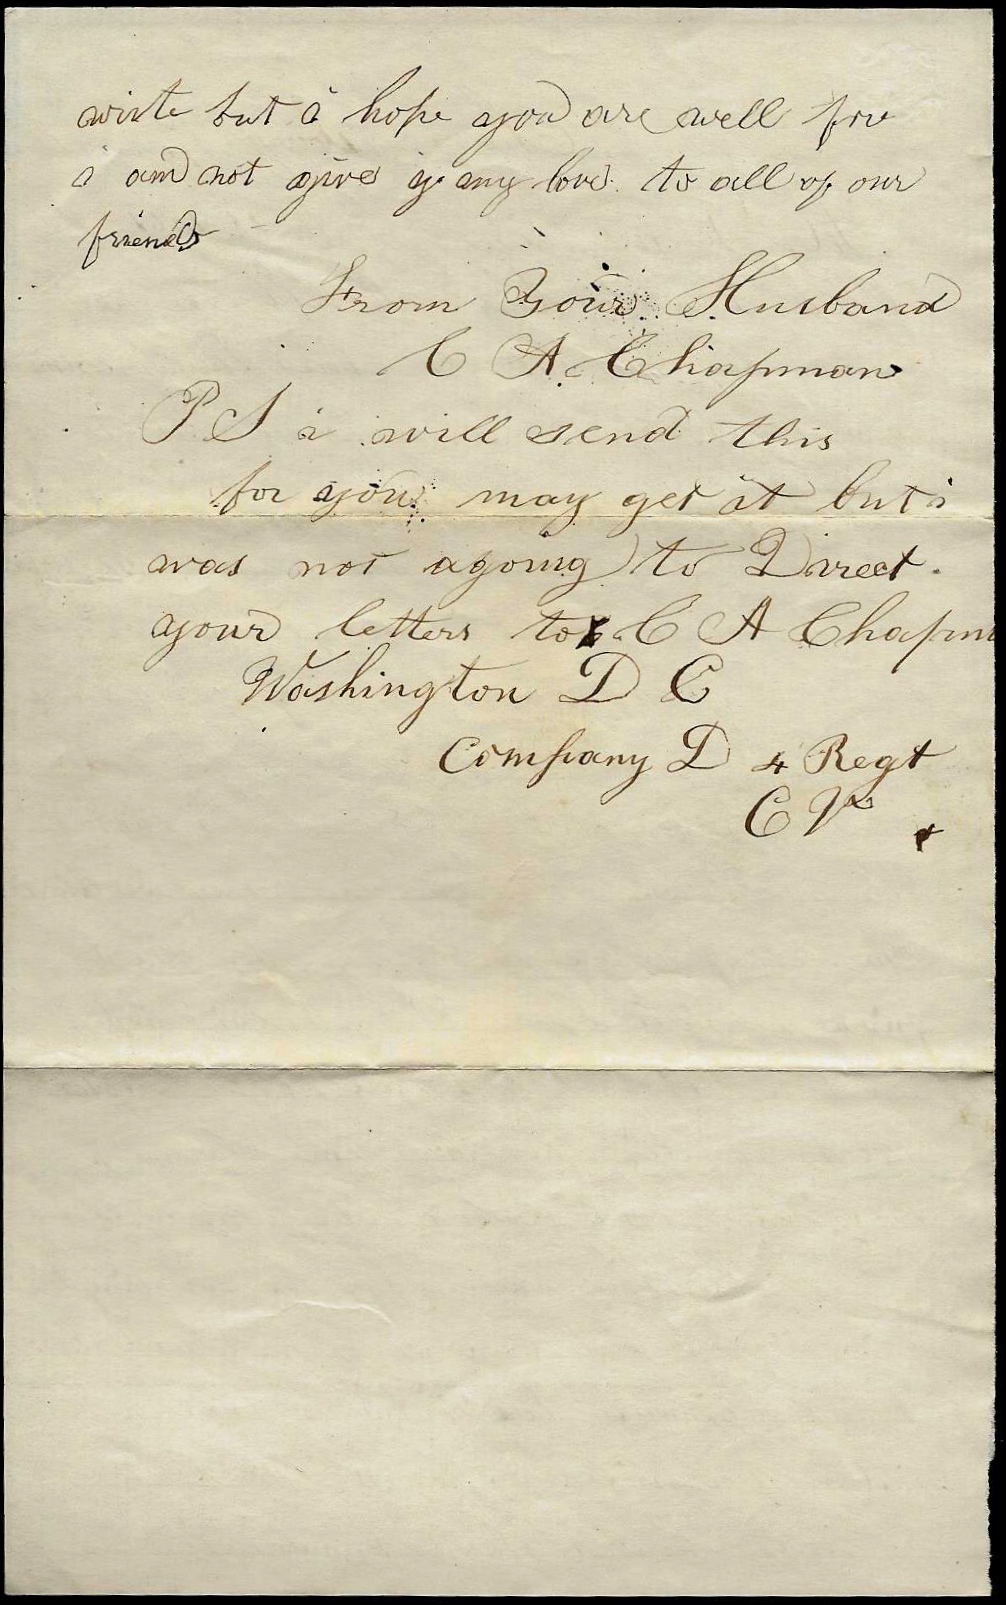 wirte but i hope you are well for
i am not give my love to all of our
friends
From Your Husband
C A Chapman
P S i will send this
for you may get it but i
was not agoing to Direct
your letters to C A Chapm
Washington D C
Company D 4 Regt
C V